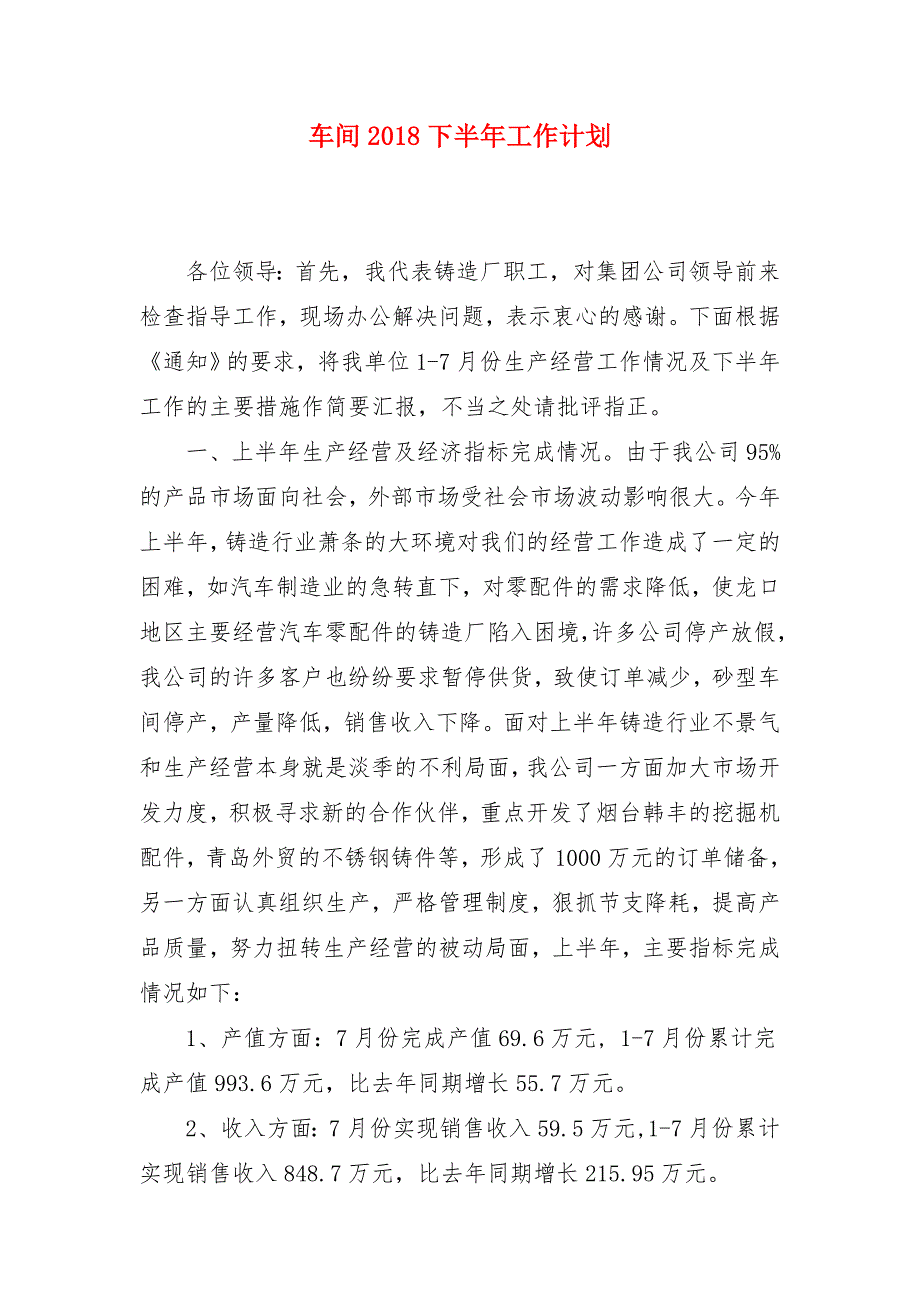 车间2018下半年工作计划
各位领导：首先，我代表铸造厂职工，对集团公司领导前来
检查指导工作，现场办公解决问题，表示衷心的感谢。下面根据
《通知》的要求，将我单位1-7月份生产经营工作情况及下半年
工作的主要措施作简要汇报，不当之处请批评指正。
一、上半年生产经营及经济指标完成情况。由于我公司95%
的产品市场面向社会，外部市场受社会市场波动影响很大。今年
上半年，铸造行业萧条的大环境对我们的经营工作造成了一定的
困难，如汽车制造业的急转直下，对零配件的需求降低，使龙口
地区主要经营汽车零配件的铸造厂陷入困境，许多公司停产放假，
我公司的许多客户也纷纷要求暂停供货，致使订单减少，砂型车
间停产，产量降低，销售收入下降。面对上半年铸造行业不景气
和生产经营本身就是淡季的不利局面，我公司一方面加大市场开
发力度，积极寻求新的合作伙伴，重点开发了烟台韩丰的挖掘机
配件，青岛外贸的不锈钢铸件等，形成了1000万元的订单储备，
另一方面认真组织生产，严格管理制度，狠抓节支降耗，提高产
品质量，努力扭转生产经营的被动局面，上半年，主要指标完成
情况如下：
1、产值方面：7月份完成产值69.6万元，1-7月份累计完
成产值993.6万元，比去年同期增长55.7万元。
2、收入方面：7月份实现销售收入59.5万元,1-7月份累计
实现销售收入848.7万元，比去年同期增长215.95万元。